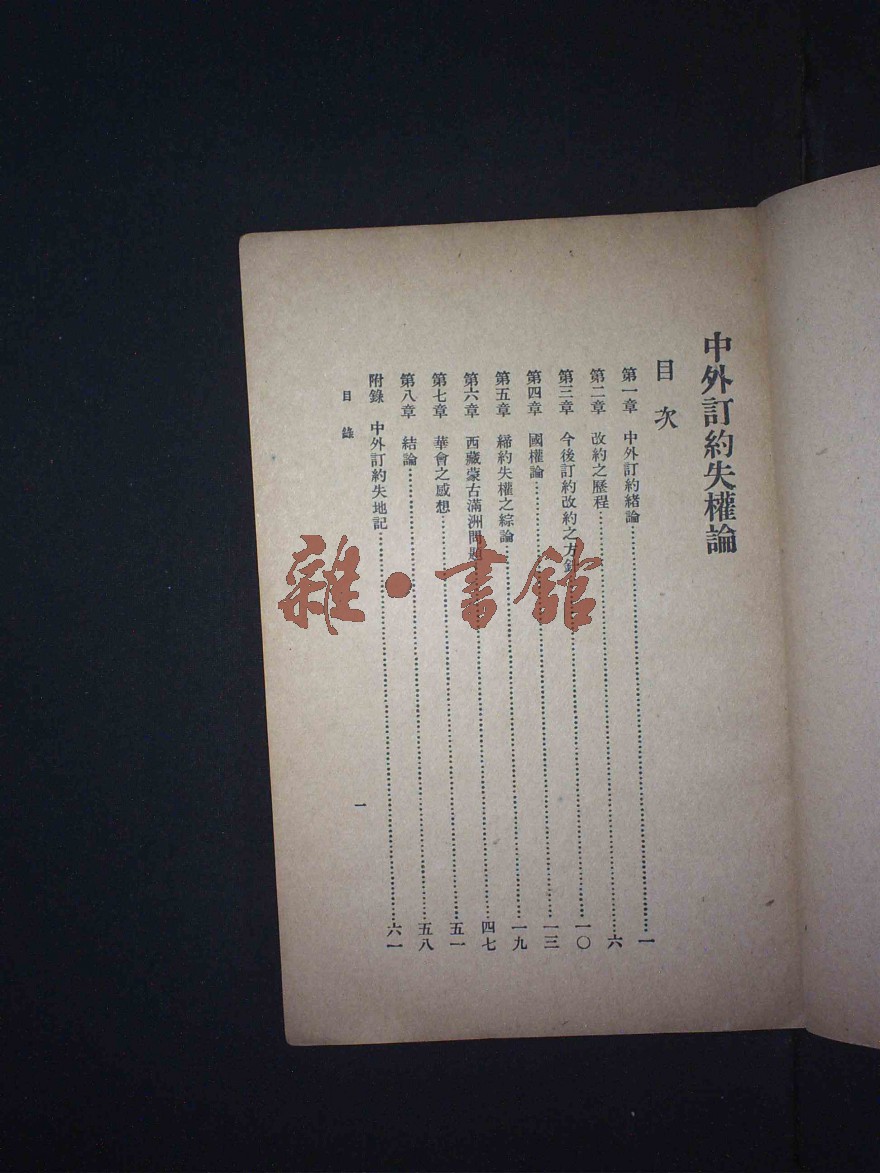 中外訂約失權論
目次
第一章 中外訂約緒論……一
第二章 改約之歷程……六
第三章 今後訂約改約之方針……一〇
第四章 國權論……一三
第五章 締約失權之綜論……一九
第六章 西藏蒙古滿洲問題……四七
第七章 華會之感想……五一
第八章 結論……五八
附錄 中外訂約失地記……六一
目錄
一
雜·書館